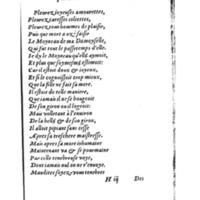 Pleurez joyeuses amourettes,
Pleurez caresses colorettes,
Pleurez tous hommes de plaisir,
Puis que mort a osé saisir
Le Moyneau de ma Damoyselle,
Qui fut tout le passetemps d'elle.
Je dy le Moyneau qu'elly aymoit,
Et plus que soymesme estimoit:
Car il estoit doux & joyeux,
Et si le cognoissoit trop mieux,
Que la fille ne fait sa mere,
Il estoit de telle maniere,
Que jamais il ne se bougeoit
De son giron ou il logeoit:
Mais volletant à l'environ
De la belle & de son giron,
Il alloit pipiant sans cesse
Apres sa treschere maistresse.
Mais apres sa mort inhumaine
Maintenant va & se pourmaine
Par celle tenebreuse voye,
Dont jamais nul on ne r'envoye.
Maudites soyez, vous tenebres
H iij Des